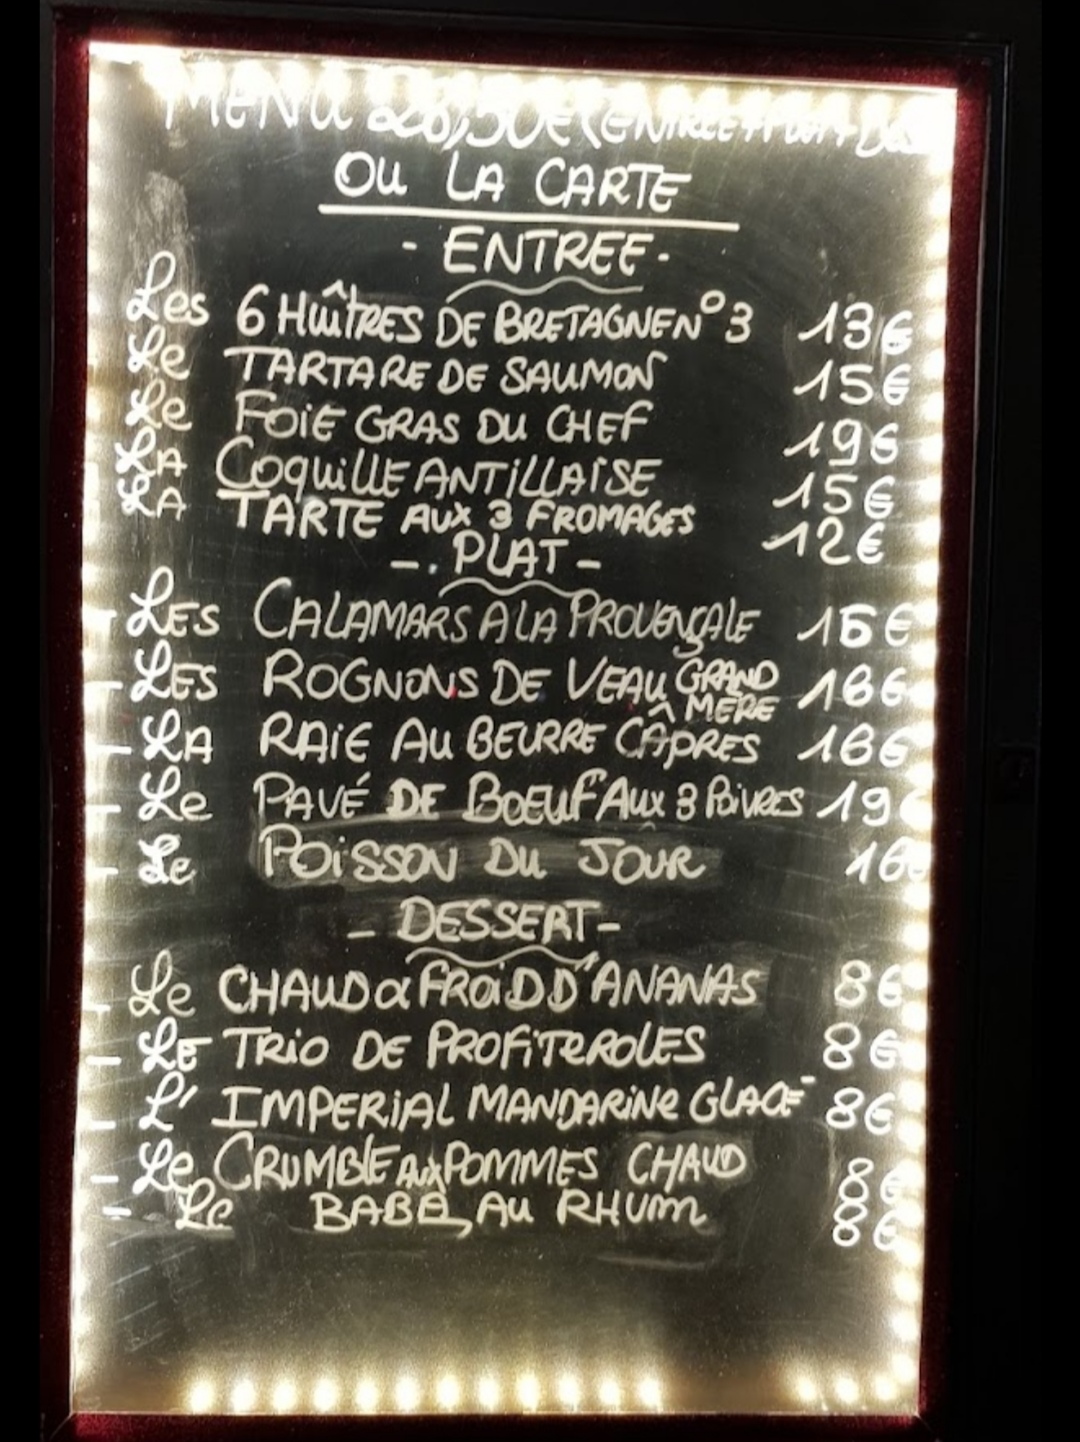 MENU 28,50€ (ENTREE + PLAT +
OU LA CARTE
- ENTREE -
Les 6 HUÎTRES DE BRETAGNE N°3 13€
Le TARTARE DE SAUMON 15€
Le FOIE GRAS DU CHEF 19€
LA COQUILLE ANTILLAISE 15€
LA TARTE AUX 3 FROMAGES 12€
- PLAT -
- LES CALAMARS A LA PROVENÇALE 16€
- LES ROGNONS DE VEAU GRAND MÈRE 16€
- LA RAIE AU BEURRE CÂPRES 16€
- Le PAVÉ DE BOEUF AUX 3 POIVRES 19€
- Le POISSON DU JOUR 16€
- DESSERT -
- Le CHAUD & FROID D'ANANAS 8€
- LE TRIO DE PROFITEROLES 8€
- L' IMPERIAL MANDARINE GLACÉ 8€
- Le CRUMBLE AUX POMMES CHAUD 8€
- Le BABA AU RHUM 8€